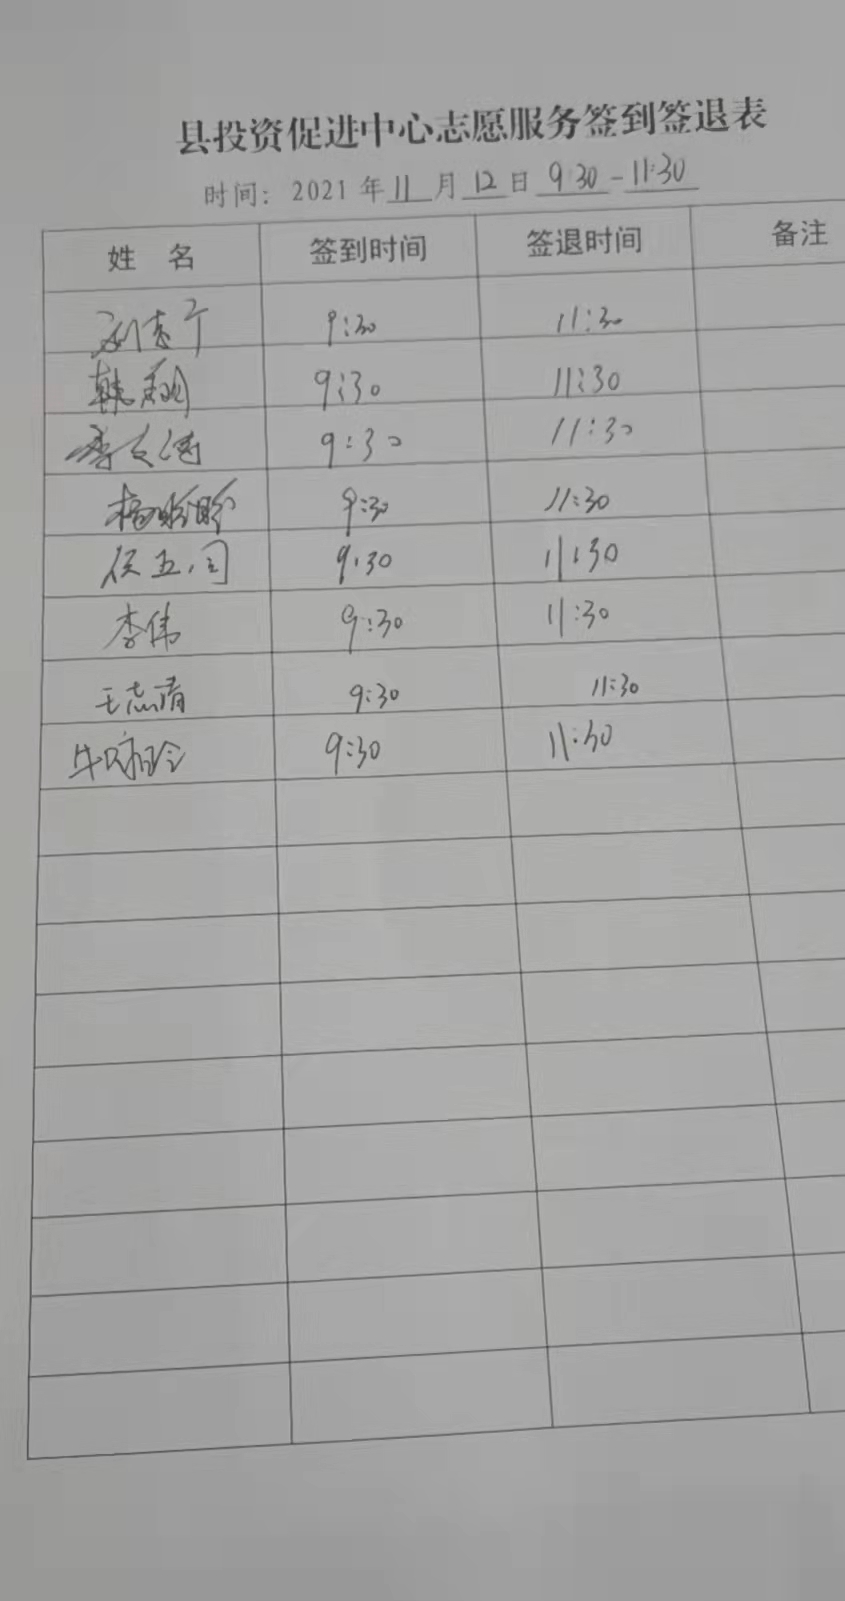 县投资促进中心志愿服务签到签退表
时间：2021年11月12日 9:30-11:30
姓 名 签到时间 签退时间 备注
9:30 11:30
韩翔 9:30 11:30
9:30 11:30
杨盼盼 9:30 11:30
9:30 11:30
李伟 9:30 11:30
王志清 9:30 11:30
牛咏玲 9:30 11:30